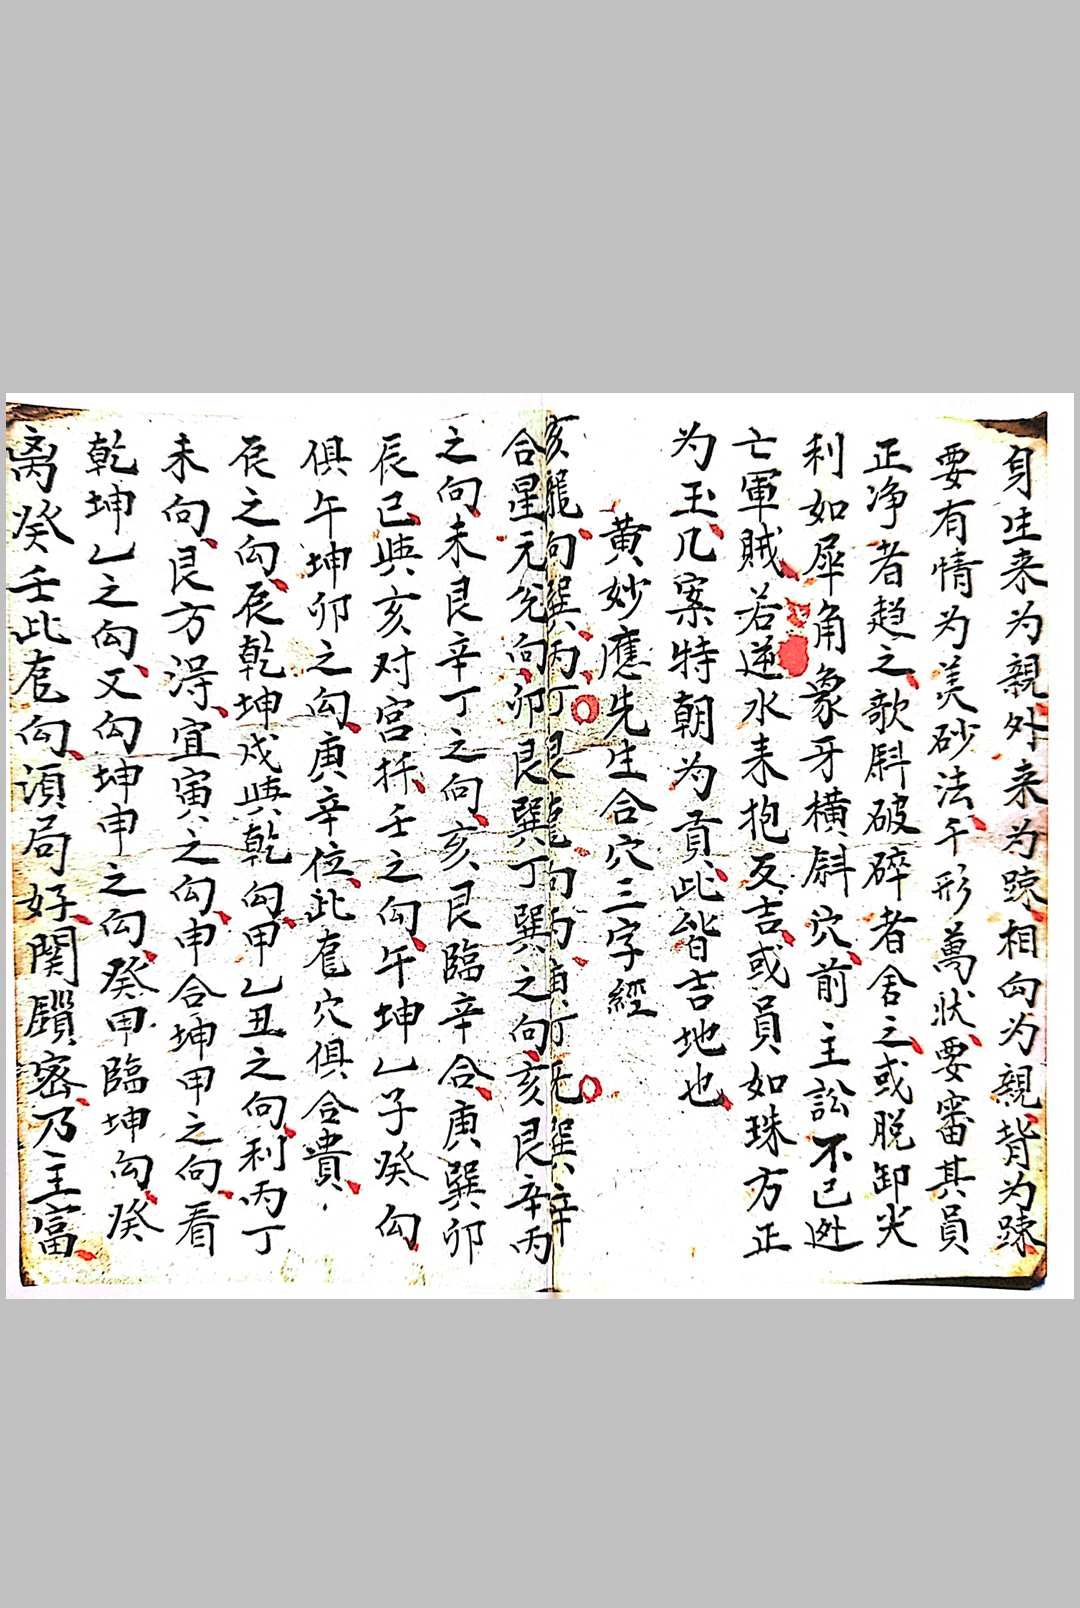 身生来为親外来为踈相向为親背为踈
要有情为美砂法千形萬状要審其員
正净者趋之歌斜破碎者舍之或脱卸尖
利如犀角象牙横斜穴前主訟不已逃
亡軍賊若逆水来抱反吉或員如珠方正
为玉几案特朝为貢此皆吉地也
黄妙應先生合穴三字經
亥龍向巽丙丁艮龍向丙庚丁兎巽辛
合星元兊向卯艮巽丁巽之向亥艮辛丙
之向未艮辛丁之向亥艮臨辛合庚巽卯
辰巳與亥对宫扦壬之向午坤乙子癸向
俱午坤卯之向庚辛位此㡯穴俱合貴
辰之向辰乾坤戍與乾向甲乙丑之向利丙丁
未向艮方淂宜寅之向申合坤甲之向看
乾坤乙之向又向坤申之向癸甲臨坤向癸
离癸壬此㡯向湏局好関鎻密乃主富